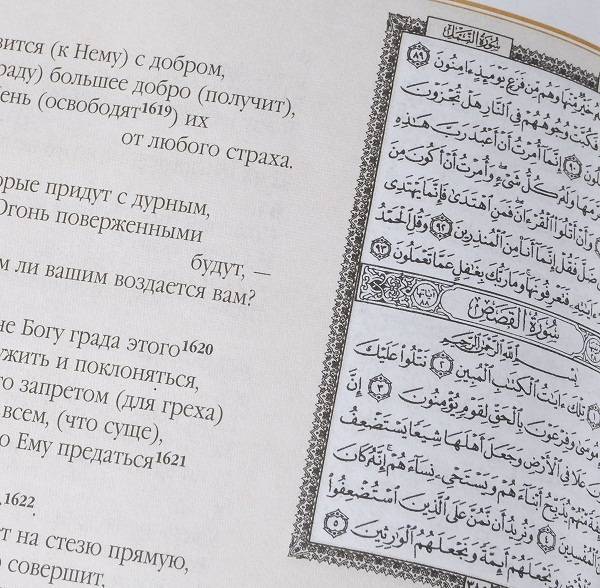 вится (к Нему) с добром,
раду) большее добро (получит),
ень (освободят1619) их
от любого страха.
орые придут с дурным,
Огонь поверженными
будут, —
м ли вашим воздается вам?
не Богу града этого1620
ужить и поклоняться,
го запретом (для греха)
всем, (что суще),
о Ему предаться1621
,1622.
ет на стезю прямую,
совершит,
سُورَةُ النَّمْلِ
خَيْرٌ مِّنْهَا وَهُم مِّن فَزَعٍ يَوْمَئِذٍ ءَامِنُونَ ٨٩
فَكُبَّتْ وُجُوهُهُمْ فِي النَّارِ هَلْ تُجْزَوْنَ
لُونَ ٩٠ إِنَّمَا أُمِرْتُ أَنْ أَعْبُدَ رَبَّ هَٰذِهِ
رَّمَهَا وَلَهُ كُلُّ شَيْءٍ وَأُمِرْتُ أَنْ أَكُونَ مِنَ
وَأَنْ أَتْلُوَا الْقُرْءَانَ فَمَنِ اهْتَدَىٰ فَإِنَّمَا يَهْتَدِي
ضَلَّ فَقُلْ إِنَّمَا أَنَا مِنَ الْمُنذِرِينَ ٩٢ وَقُلِ الْحَمْدُ
ءَايَٰتِهِ فَتَعْرِفُونَهَا وَمَا رَبُّكَ بِغَٰفِلٍ عَمَّا تَعْمَلُونَ ٩٣
سُورَةُ الْقَصَصِ آيَاتُهَا ٨٨
بِسْمِ اللَّهِ الرَّحْمَٰنِ الرَّحِيمِ
تِلْكَ ءَايَٰتُ الْكِتَٰبِ الْمُبِينِ ٢ نَتْلُوا عَلَيْكَ
مُوسَىٰ وَفِرْعَوْنَ بِالْحَقِّ لِقَوْمٍ يُؤْمِنُونَ ٣ إِنَّ
عَلَا فِي الْأَرْضِ وَجَعَلَ أَهْلَهَا شِيَعًا يَسْتَضْعِفُ
مِّنْهُمْ يُذَبِّحُ أَبْنَاءَهُمْ وَيَسْتَحْيِۦ نِسَاءَهُمْ إِنَّهُ كَانَ
الْمُفْسِدِينَ ٤ وَنُرِيدُ أَن نَّمُنَّ عَلَى الَّذِينَ اسْتُضْعِفُوا
وَنَجْعَلَهُمْ أَئِمَّةً وَنَجْعَلَهُمُ الْوَٰرِثِينَ ٥